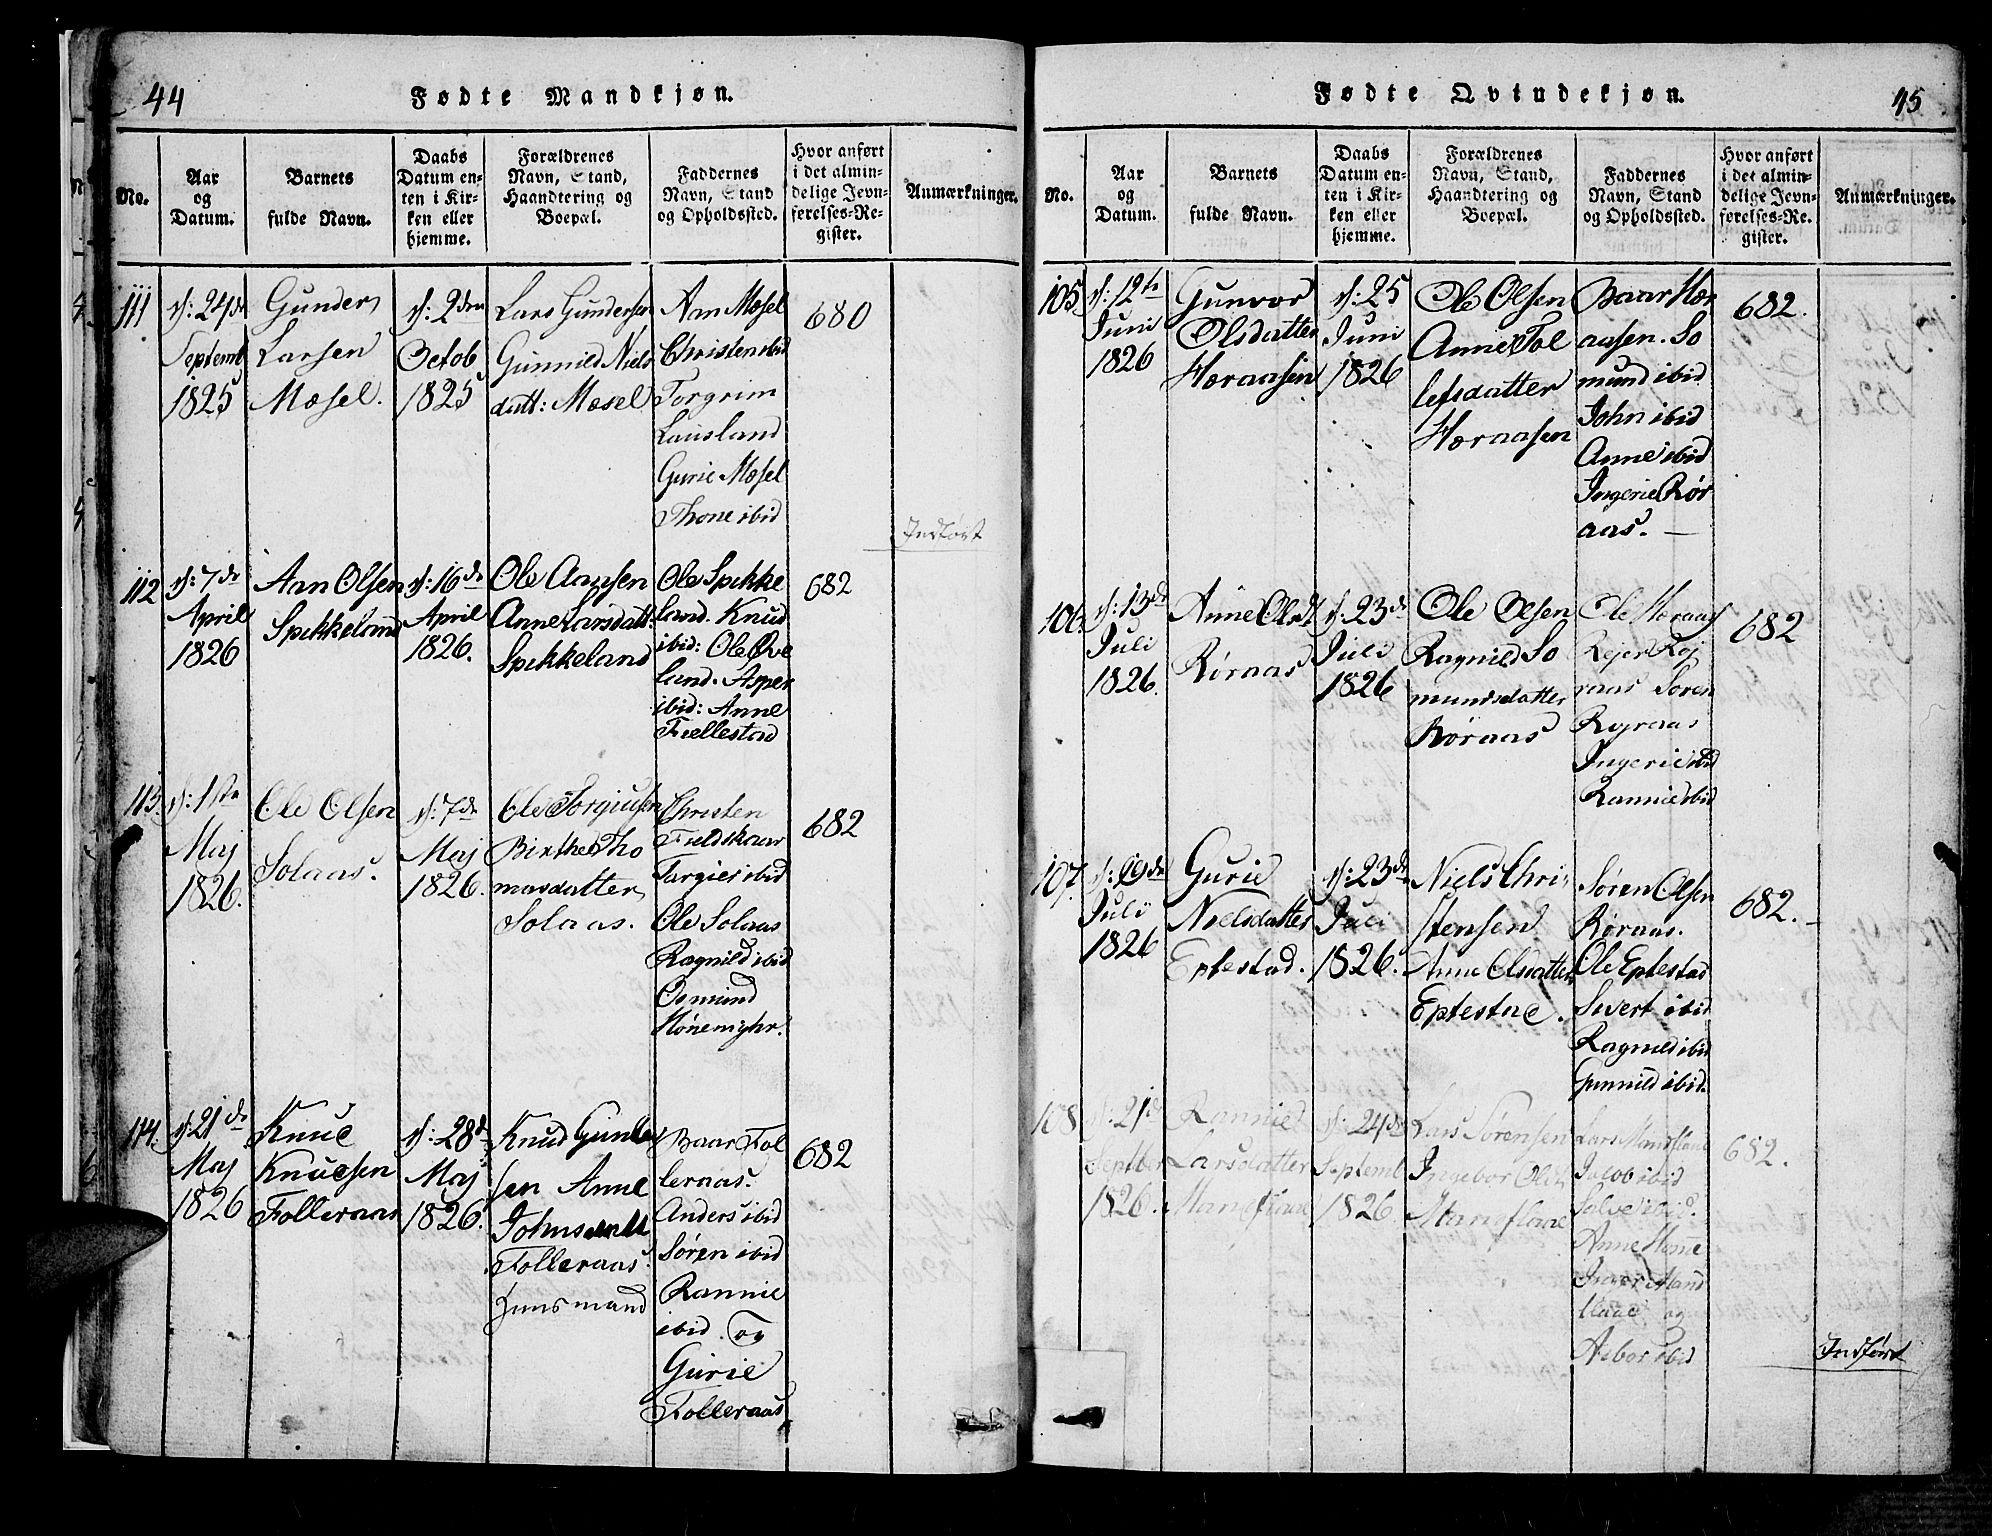 44
Fødte Mandkjøn.
No.
Aar
og
Datum.
Barnets
fulde Navn.
Daabs
Datum en-
ten i Kir-
ken eller
hjemme.
Forældrenes
Navn, Stand,
Haandtering og
Boepæl.
Faddernes
Navn, Stand
og Opholdssted.
Hvor anført
i det almin-
delige Jevn-
førelses-Re-
gister.
Anmærkninger.
111
d: 24de
Septembr
1825
Gunder
Larsen
Mosel.
d: 2den
Octob
1825
Lars Gundersen
Gunnild Niels
datt: Mosel
Aan Mosel
Christen ibid
Torgrim
Lausland
Gurie Mosel
Thone ibid
680
Indført
112
d: 7de
April
1826
Aan Olsen
Spikkeland
d: 16de
April
1826.
Ole Aansen
Anne Larsdatt:
Spikkeland
Ole Spikke
land. Knud
ibid: Ole Øve
land. Asper
ibid: Anne
Fiellestad
682
113.
d: 1ste
Maj
1826.
Ole Olsen
Solaas.
d: 7de
Maj
1826.
Ole Torgiusen
Birthe Tho
masdatter
Solaas.
Christen
Fieldskaar
Targiei ibid
Ole Solaas
Ragnild ibid
Osmund
682
114.
d: 21de
Maj
1826
Knud
Knudsen
Folleraas
d: 28de
Maj
1826.
Knud Gunles
sen Anne
Follleraas.
Huusmand
Baar Fol
leraas.
Anders ibid
Søren ibid
Rannie
ibid. og
Gurie
Folleraas
682
45
Fødte Qvindekjøn.
No.
Aar
og
Datum.
Barnets
fulde Navn.
Daabs
Datum en-
ten i Kir-
ken eller
hjemme.
Forældrenes
Navn, Stand,
Haandtering og
Boepæl.
Faddernes
Navn, Stand
og Opholdssted.
Hvor anført
i det almin-
delige Jevn-
førelses-Re-
gister.
Anmærkninger.
105
d: 12te
Juni
1826
Gunvor
Olsdatter
Horaasen
d: 25
Juni
1826
Ole Olsen
Anne Tol
lefsdatter
Horaasen
Baar Hor
aasen. So
mund ibid
John ibid
Anne ibid
Ingerie Rør
aas.
682.
106.
d: 13de
Juli
1826.
Anne Olsdt
Røraas
d: 23de
Juli
1826
Ole Olsen
Ragnild So
mundsdatter
Røraas
Ole Horaas
Rejer Røj
raas Søren
Røjraas
Ingerie ibid
Rannie ibid
682
107.
d: 19de
Juli
1826
Gurie
Nielsdatter
Eptestad.
d: 23de
Juli
1826.
Niels Chri
stensen
Anne Olsdatter
Eptestad.
Søren Olsen
Røraas.
Ole Eptestad
Sivert ibid
Ragnild ibid
Gunnild ibid.
682.
108
d: 21de
Septber
1826.
Rannie
Larsdatter
Mandflaae
d: 24de
Septemb
1826
Lars Sørensen
Ingebor Olsd
Mandflaae
Lars Mandflaae
Jacob ibid
Salve ibid.
Anne Home
Inger Mand
flaae og
Asbor ibid
682.
Indført